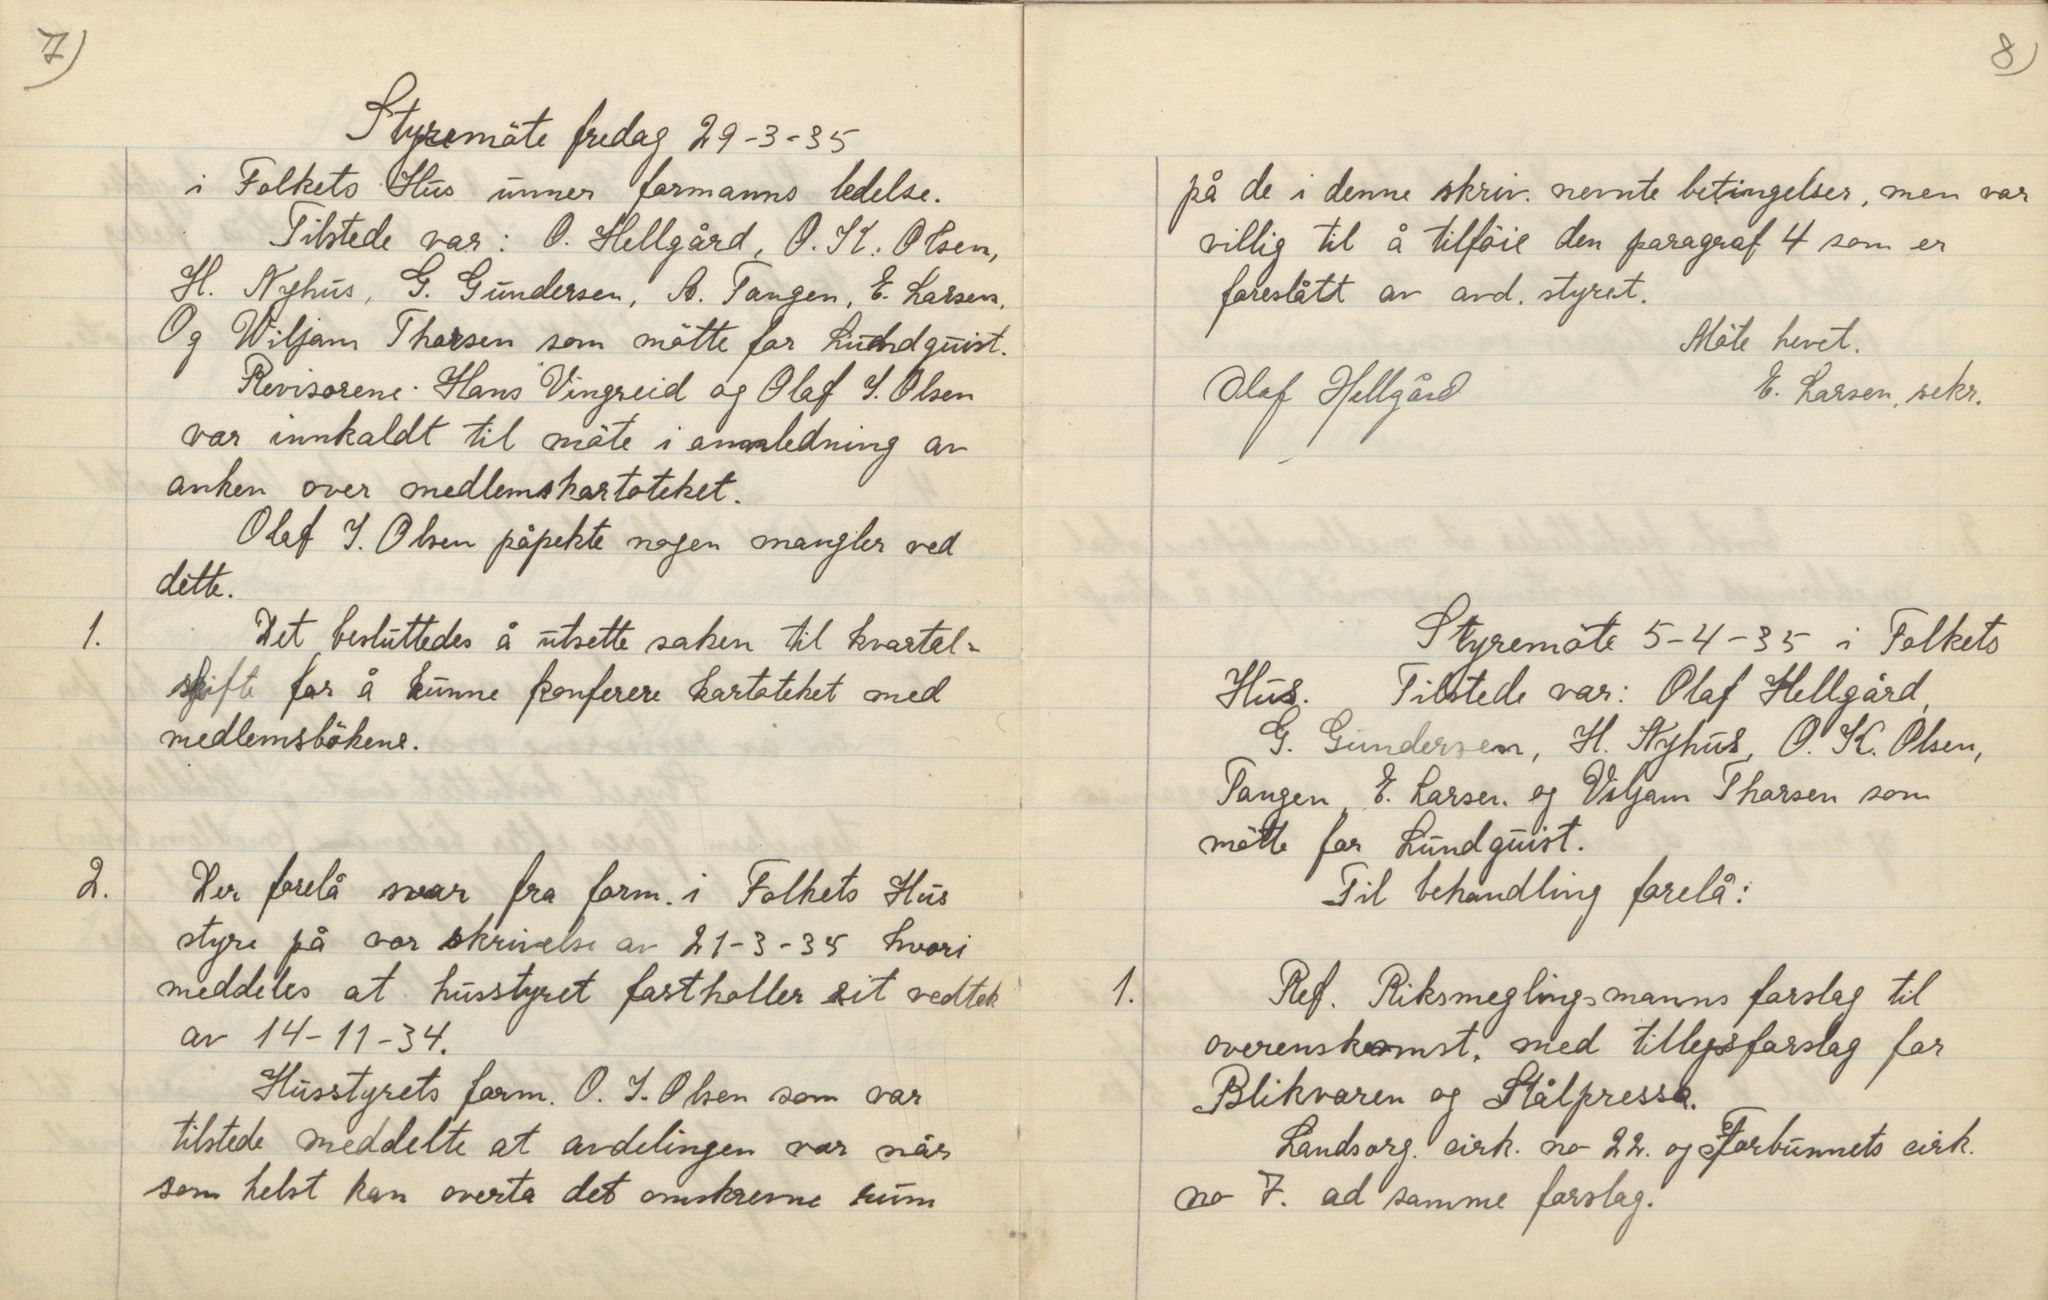 7)
Styremöte fredag 29-3-35
i Folkets Hus unner formanns ledelse.
Tilstede var: O. Hellgård, O. K. Olsen,
H. Nyhus, G. Gundersen, A. Tangen, E. Larsen.
Og Wiljam Thorsen som mötte for Lundquist.
Revisorene Hans Vingreid og Olaf I. Olsen
var innkaldt til möte i annledning av
anken over medlemskartoteket.
Olaf I. Olsen påpekte nogen mangler ved
dette.
1. Det besluttedes å utsette saken til kvartal-
skifte for å kunne konferere kartoteket med
medlemsbökene.
2. Der forelå svar fra form. i Folkets Hus
styre på vor skrivelse av 21-3-35 hvori
meddeles at husstyret fastholler sit vedtak
av 14-11-34.
Husstyrets form. O. I. Olsen som var
tilstede meddelte at avdelingen var når
som helst kan overta det omskrevne rum
8)
på de i denne skriv. nevnte betingelser, men var
villig til å tilföie den paragraf 4 som er
foreslått av avd. styret.
Möte hevet.
Olaf Hellgård E. Larsen, sekr.
Styremöte 5-4-35 i Folkets
Hus. Tilstede var: Olaf Hellgård,
G. Gundersen, H. Nyhus, O. K. Olsen,
Tangen, E. Larsen. og Viljam Thorsen som
mötte for Lundquist.
Til behandling forelå:
1. Ref. Riksmeglingsmanns forslag til
overenskomst, med tillegsforslag for
Blikvaren og Stålpressa.
Landsorg. cirk. no 22. og Forbunnets cirk.
no 7. ad samme forslag.